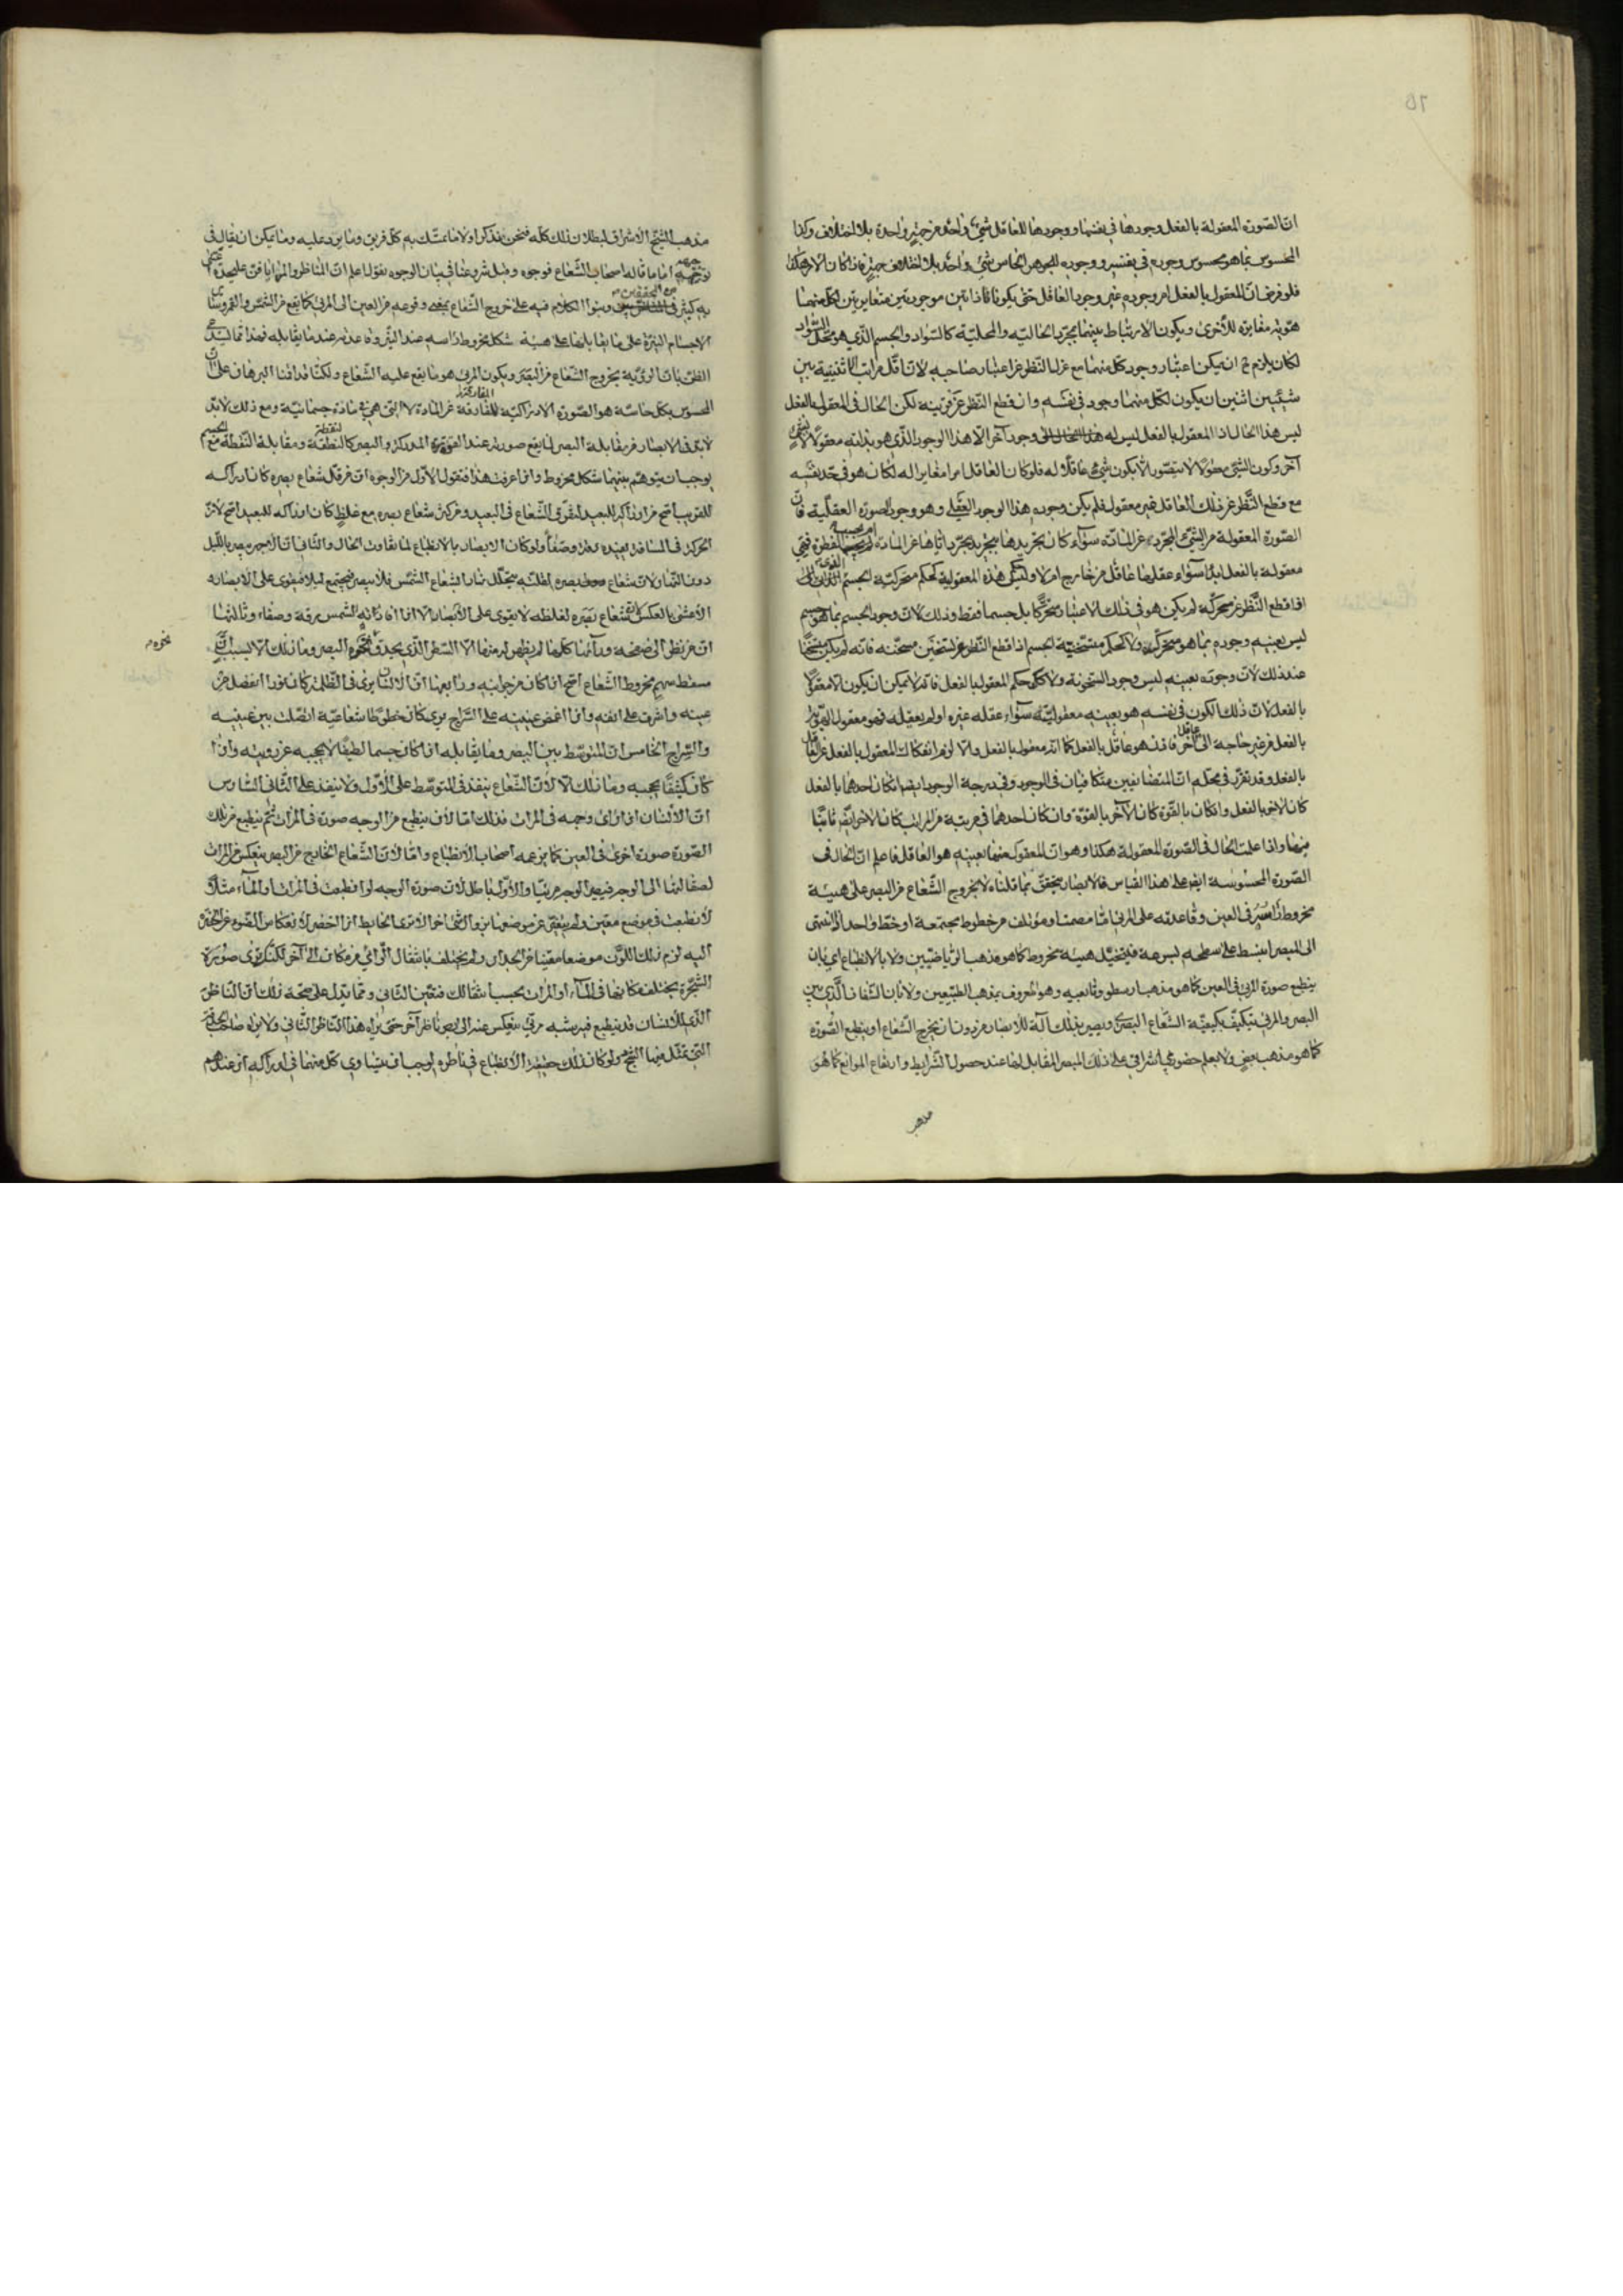 ان الصورة المعقولة بالفعل وجودها في نفسها ووجودها للعاقل شيء واحد من جهة واحدة بلا اختلاف وكذا
المحسوس بما هو محسوس وجوده في نفسه ووجوده للجوهر الحاس شيء واحد بلا اختلاف جهة فاذا كان الامر هكذا
فلو فرض ان المعقول بالفعل امر وجوده غير وجود العاقل حتى يكونا ذاتين موجودتين متغايرتين لكل منهما
هوية مغايرة للاخرى ويكون الارتباط بينهما بمجرد الحالية والمحلية كالسواد والجسم الذي هو محل السواد
لكان يلزم ح ان يمكن اعتبار وجود كل منهما مع عزل النظر عن اعتبار صاحبه لان اقل مراتب الاثنينية بين
شيئين اثنين ان يكون لكل منهما وجود في نفسه وان قطع النظر عن قرينه لكن الحال في المعقول بالفعل
ليس هذا الحال اذ المعقول بالفعل ليس له وجود آخر الا هذا الوجود الذي هو بذاته معقول لا بشيء
آخر وكون الشيء معقولا لا يتصور الا بكون شيء عاقلا له فلو كان العاقل امرا مغايرا له لكان هو في حد نفسه
مع قطع النظر عن ذلك العاقل غير معقول فلم يكن وجوده هذا الوجود العقلي وهو وجود الصورة العقلية فان
الصورة المعقولة من الشيء المجردة عن المادة سواء كان تجريدها بتجريد مجرد اياها عن المادة ام بحسب الفطرة فهي
معقولة بالفعل ابدا سواء عقلها عاقل من خارج ام لا وليس حكم هذه المعقولية كحكم متحركية الجسم الذي
اذا قطع النظر عن محركه لم يكن هو في ذلك الاعتبار متحركا بل جسما فقط وذلك لان وجود الجسم بما هو جسم
ليس بعينه وجوده بما هو متحرك ولا كحكم متسخنية الجسم اذا قطع النظر عن تسخين مسخنه فانه لم يكن متسخنا
عند ذلك لان وجوده بعينه ليس وجود السخونة ولا كذلك حكم المعقول بالفعل فانه لا يمكن ان يكون الا معقولا
بالفعل لان ذلك الكون في نفسه هو بعينه معقوليته سواء عقله غيره او لم يعقله فهو معقول الهوية
بالفعل من غير حاجة الى عاقل آخر فاذن هو عاقل بالفعل كما انه معقول بالفعل والا لزم انفكاك المعقول بالفعل عن العاقل
بالفعل وقد تقرر في محله ان المتضايفين متكافيان في الوجود وفي درجة الوجود ايضا ان كان احدهما بالفعل
كان الاخر بالفعل وان كان بالقوة كان الآخر بالقوة وان كان احدهما في مرتبة من المراتب كان الاخر ايضا ثابتا
فيها واذا علمت الحال في الصورة المعقولة هكذا وهو ان المعقول منها بعينه هو العاقل فاعلم ان الحال في
الصورة المحسوسة ايضا على هذا القياس فالابصار يتحقق بما قلناه لا بخروج الشعاع من البصر على هيئة
مخروط راسه في العين وقاعدته على المرئي اما مصمتا او مؤتلف من خطوط مجتمعة او خطا واحدا اذا انتهى
الى المبصر انبسط على سطحه بسرعة فيتخيل هيئة مخروط كما هو مذهب الرياضيين ولا بالانطباع اي بان
ينطبع صورة المرئي في العين كما هو مذهب ارسطو وتابعيه وهو المعروف بمذهب الطبيعيين ولا بان الشفاف الذي بين
البصر والمرئي يتكيف بكيفية الشعاع البصري ويصير بذلك آلة للابصار من دون ان يخرج الشعاع او ينطبع الصورة
كما هو مذهب بعض ولا بعلم حضوري اشراقي على ذلك المبصر المقابل لها عند حصول الشرايط وارتفاع الموانع كما هو
مذهب
مذهب الشيخ الاشراق لبطلان ذلك كله فنحن نذكر اولا ما تمسك به كل فريق وما يرد عليه وما يمكن ان يقال في
توجيهه اما ما قاله اصحاب الشعاع فوجوه وقبل شروعنا في بيان الوجوه نقول اعلم ان المناظر والمرايا فن عليحدة اعتنى
به كثير من المحققين وبنوا الكلام فيه على خروج الشعاع بمعنى وقوعه من العين الى المرئي كما يقع من الشمس والقمر وسائر
الاجسام النيرة على ما يقابلها على هيئة شكل مخروط راسه عند النير وقاعدته عند ما يقابله فهذا مما يشد
الظن بان الرؤية بخروج الشعاع من البصر ويكون المرئي هو ما يقع عليه الشعاع ولكنا قد اقمنا البرهان على ان
المحسوس بكل حاسة هو الصورة الادراكية المفارقة عن المادة لا التي هي في مادة جسمانية ومع ذلك لابد
لابد في الابصار من مقابلة البصر لما يقع صورته عند القوة المدركة والبصر كالنقطة ومقابلة النقطة مع الجسم
يوجب ان يتوهم بينهما شكل مخروط واذا عرفت هذا فنقول الاول من الوجوه ان من قل شعاع بصره كان ادراكه
للقريب اصح من ادراكه للبعيد لتفرق الشعاع في البعيد ومن كثر شعاع بصره مع غلظ كان ادراكه للبعيد اصح لان
الحركة في المسافة البعيدة رقة وصفاء ولو كان الابصار بالانطباع لما تفاوت الحال والثاني ان الاجهر يبصر بالليل
دون النهار لان شعاع بصره لقلته يتحلل نهارا بشعاع الشمس فلا يبصر ويجتمع ليلا فيقوى على الابصار
الاعشى بالعكس لان شعاع بصره لغلظه لا يقوى على الابصار الا اذا افادته الشمس رقة وصفاء وثالثها
ان من نظر الى صفحة ورآها كلها لم يظهر له منها الا السطر الذي يحدق نحوه البصر وما ذلك الا بسبب ان
نحوه
مسقط سهم مخروط الشعاع اصح اذا كان من جوانبه ورابعها ان الانسان يرى في الظلمة كان نورا انفصل من
عينه واشرق على انفه واذا اغمض عينيه على السراج يرى كان خطوطا شعاعية اتصلت بين عينيه
والسراج الخامس ان المتوسط بين البصر وما يقابله اذا كان جسما لطيفا لا يحجبه عن رؤيته واذا
كان كثيفا يحجبه وما ذلك الا لان الشعاع ينفذ في المتوسط على الاول ولا ينفذ على الثاني السادس
ان الانسان اذا راى وجهه في المرات فذلك اما لان ينطبع من الوجه صورة في المرات ثم ينطبع من تلك
الصورة صورة اخرى في العين كما زعمه اصحاب الانطباع واما لان الشعاع الخارج من البصر ينعكس من المرات
لصقالتها الى الوجه فيصير الوجه مرئيا والاول باطل لان صورة الوجه لو انطبعت في المرات او الماء مثلا
لانطبعت في موضع معين ولم يتغير عن موضعها بزوال شيء آخر الا ترى الحايط اذا اخضر لانعكاس الضوء عن الخضرة
اليه لزم ذلك اللون موضعا معينا من الجدار ولم يختلف بانتقال الرائي من مكان الى آخر لكنك ترى صورة
الشجرة يختلف مكانها في الماء او المرات بحسب انتقالك فتعين الثاني ومما يدل على صحة ذلك ان الناظر
الذي للانسان قد ينطبع فيه شبه مرئي ينعكس عنه الى بصر ناظر آخر حتى يراه هذا الناظر الثاني ولا يراه صاحب الحدقة
التي تمثل فيها الشبح ولو كان ذلك حقيقة الانطباع في ناظره لوجب ان يتساوى كل منهما في ادراكه اذ عندهم